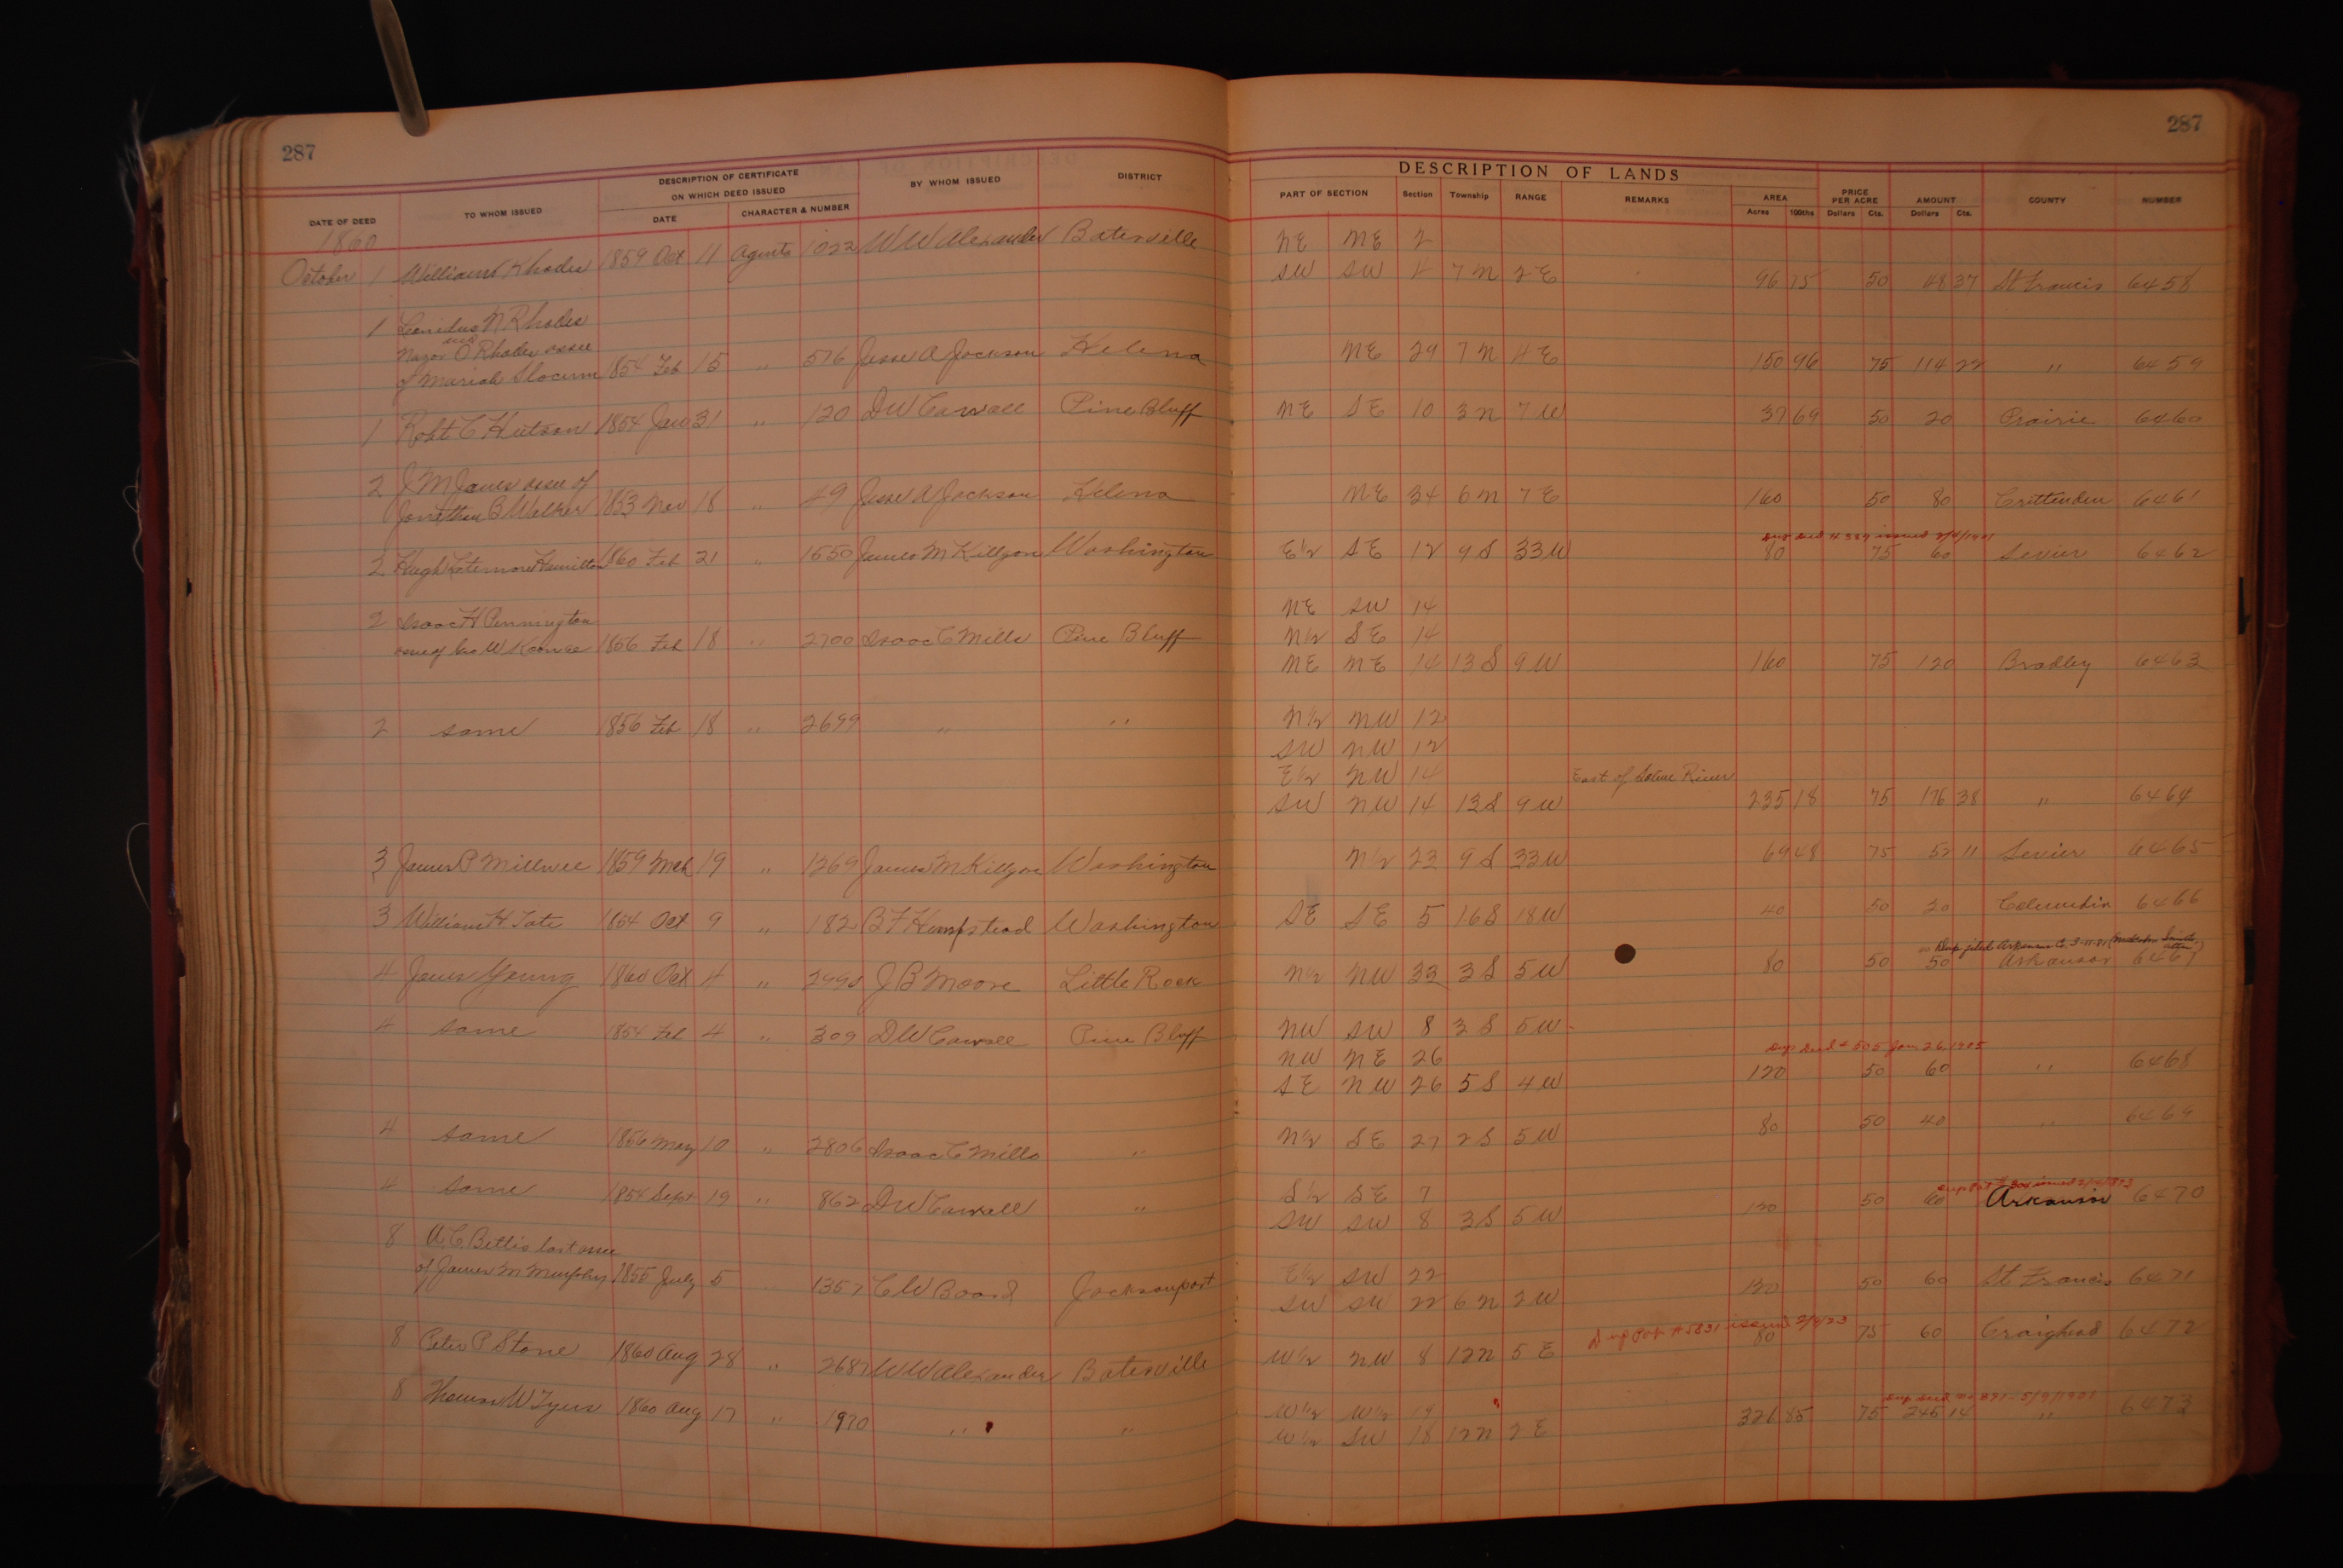 287 287
DESCRIPTION OF LANDS
DATE OF DEED TO WHOM ISSUED DESCRIPTION OF CERTIFICATE ON WHICH DEED ISSUED DATE CHARACTER & NUMBER BY WHOM ISSUED DISTRICT PART OF SECTION Section Township RANGE REMARKS AREA Acres 100ths PRICE PER ACRE Dollars Cts. AMOUNT Dollars Cts. COUNTY NUMBER
1860
NE NE 2
October 1 William Rhodes 1859 Oct 11 Agents 1022 W W Alexander Batesville SW SW 4 7 N 2 E 96 75 50 48 37 St Francis 6458
1 Leonidus N Rhodes
and
Nazor O Rhodes assee
of Mariah Slocum 1854 Feb 15 " 576 Jesse A Jackson Helena NE 29 7 N 4 E 150 96 75 114 22 " 6459
1 Robt C Hutson 1854 Jan 31 " 120 D W Carroll Pine Bluff NE SE 10 3 N 7 W 37 69 50 20 Prairie 6460
2 J M James assee of
Jonathan B Walker 1853 Nov 18 " 49 Jesse A Jackson Helena NE 34 6 N 7 E 160 50 80 Crittenden 6461
issued 2/4/1901
2 Hugh Latemore Hamilton 1860 Feb 21 " 1550 James M Killgore Washington E½ SE 12 9 S 33 W 80 75 60 Sevier 6462
2 Isaac H Pennington NE SW 14
assee of W 1856 Feb 18 " 2700 Isaac C Mills Pine Bluff N½ SE 14
NE NE 14 13 S 9 W 160 75 120 Bradley 6463
2 same 1856 Feb 18 " 2699 " " N½ NW 12
SW NW 12
E½ NW 14
East of Saline River
SW NW 14 13 S 9 W 235 18 75 176 38 " 6464
3 James P Millwee 1859 Mch 19 " 1269 James M Killgore Washington N½ 23 9 S 33 W 69 48 75 52 11 Sevier 6465
3 William H Tate 1854 Oct 9 " 182 B F Hempstead Washington SE SE 5 16 S 18 W 40 50 20 Columbia 6466
4 James Young 1860 Oct 4 " J B Moore Little Rock N½ NW 33 3 S 5 W 80 50 50 Arkansas 6467
4 same 1854 Feb 4 " 309 D W Carroll Pine Bluff NW SW 8 3 S 5 W
NW NE 26
Dup Deed # 505 Jan. 26, 1905
SE NW 26 5 S 4 W 120 50 60 " 6468
4 same 1856 May 10 " 2806 Isaac C Mills " N½ SE 27 2 S 5 W 80 50 40 " 6469
4 same 1854 Sept 19 " 862 D W Carroll " S½ SE 7
SW SW 8 3 S 5 W 120 50 60 Arkansas 6470
8 A. C. Bettis last assee
of James M Murphy 1855 July 5 1357 C W Board Jacksonport E½ SW 22
SW SW 22 6 N 2 W 120 50 60 St Francis 6471
Dup Pat # 5831 issued 2/4/23
8 Peter P Stone 1860 Aug 28 " 2687 W W Alexander Batesville W½ NW 8 12 N 5 E 80 75 60 Craighead 6472
8 Thomas W Tyus 1860 Aug 17 " 1970 " " W½ W½ 19
W½ SW 18 12 N 2 E 326 85 75 245 14 " 6473